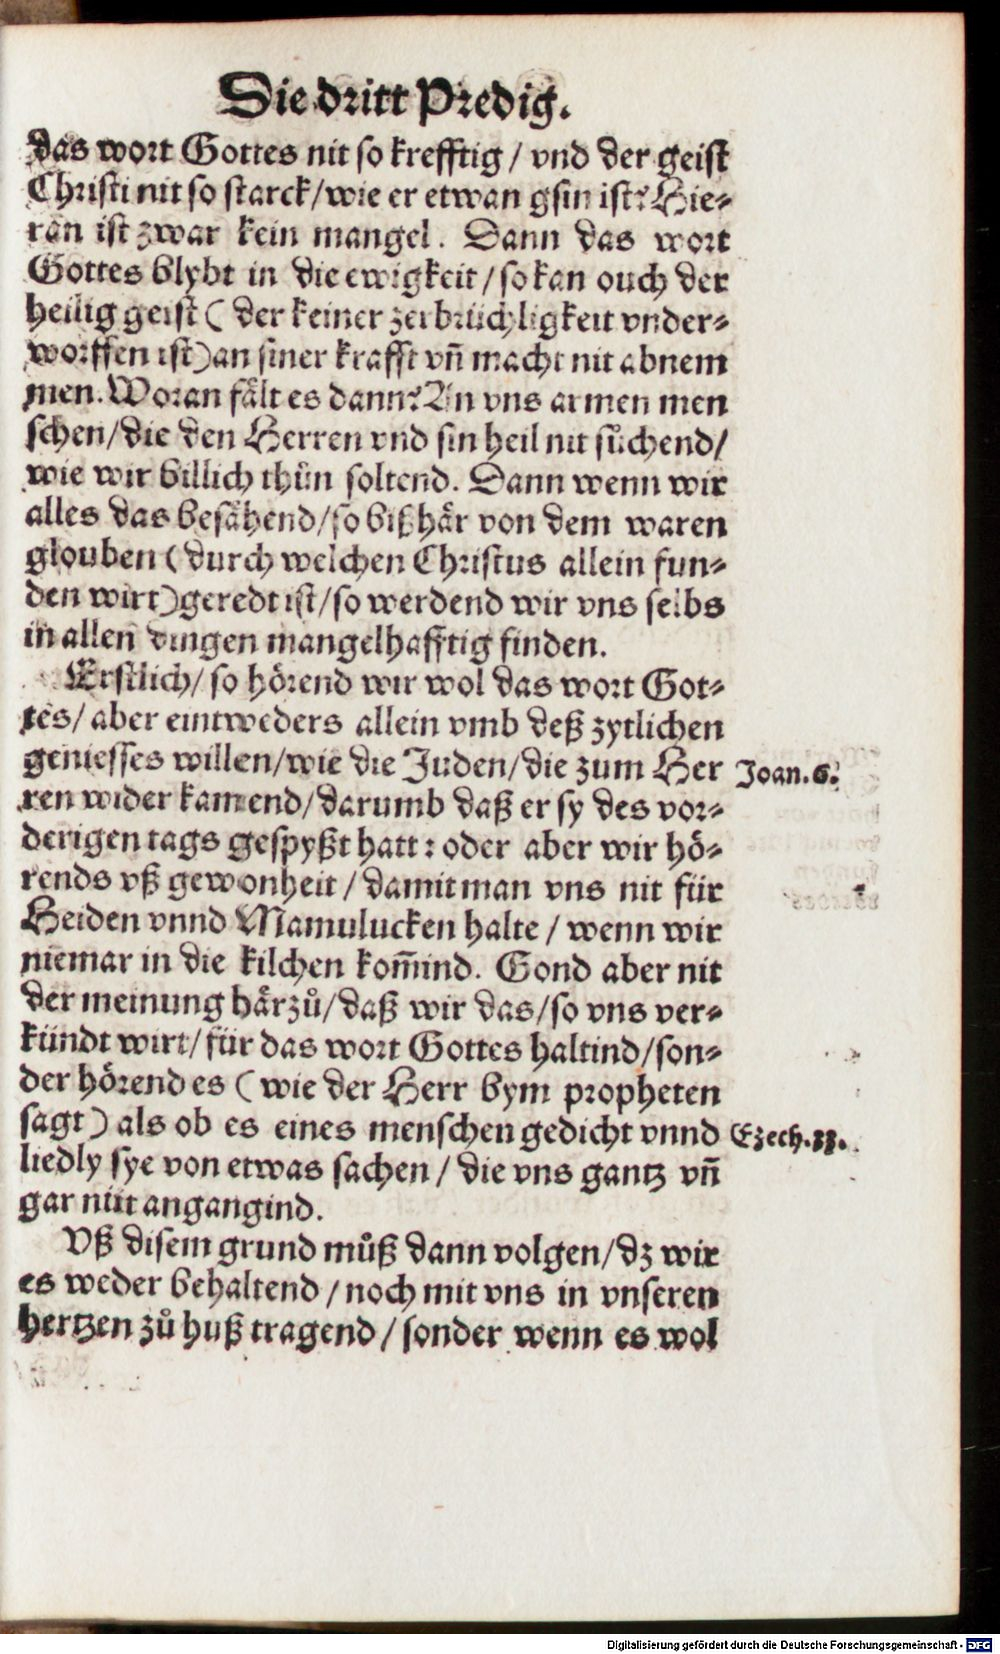 Die dritt Predig.
das wort Gottes nit so krefftig / vnd der geist
Christi nit so starck / wie er etwan gsin ist? Hie-
ran ist zwar kein mangel. Dann das wort
Gottes blybt in die ewigkeit / so kan ouch der
heilig geist ( der keiner zerbrüchligkeit vnder-
worffen ist ) an siner krafft vñ macht nit abnem
men. Woran fält es dann? An vns armen men
schen / die den Herren vnd sin heil nit sůchend /
wie wir billich thůn soltend. Dann wenn wir
alles das besähend / so bißhär von dem waren
glouben ( durch welchen Christus allein fun-
den wirt ) geredt ist / so werdend wir vns selbs
in allen dingen mangelhafftig finden.
Erstlich / so hörend wir wol das wort Got-
tes / aber eintweders allein vmb deß zytlichen
geniesses willen / wie die Juden / die zum Her Joan. 6.
ren wider kamend / darumb daß er sy des vor-
derigen tags gespyßt hatt : oder aber wir hö-
rends vß gewonheit / damit man vns nit für
Heiden vnnd Mamulucken halte / wenn wir
niemar in die kilchen kom̃ind. Gond aber nit
der meinung härzů / daß wir das / so vns ver-
kündt wirt / für das wort Gottes haltind / son-
der hörend es ( wie der Herr bym propheten
sagt ) als ob es eines menschen gedicht vnnd Ezech. 33.
liedly sye von etwas sachen / die vns gantz vñ
gar nüt angangind.
Vß disem grund můß dann volgen / dz wir
es weder behaltend / noch mit vns in vnseren
hertzen zů huß tragend / sonder wenn es wol
Digitalisierung gefördert durch die Deutsche Forschungsgemeinschaft - DFG